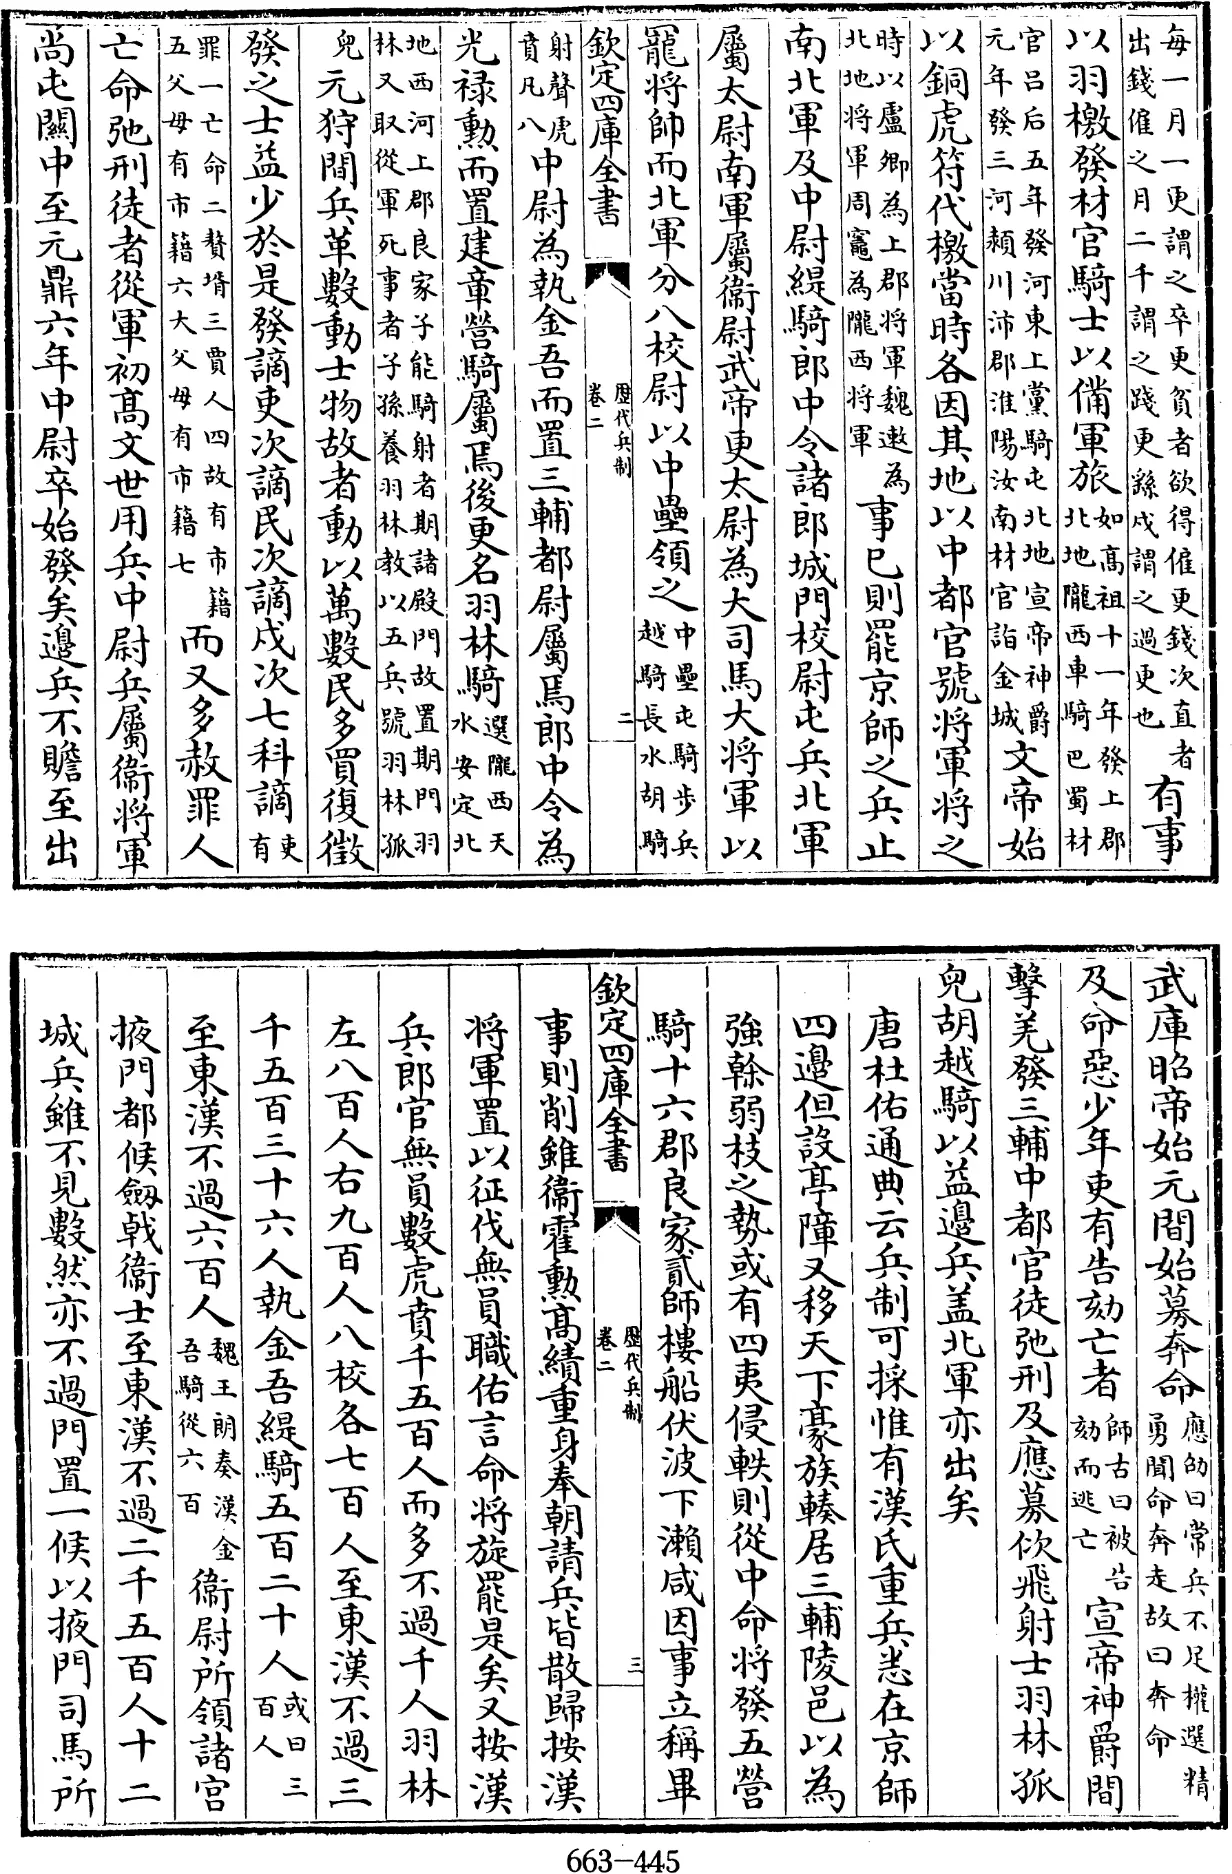 每一月一更謂之卒更貧者欲得僱更錢次直者
出錢僱之月二千謂之踐更繇戍謂之過更也
有事
以羽檄發材官騎士以備軍旅
如高祖十一年發上郡
北地隴西車騎巴蜀材
官吕后五年發河東上黨騎屯北地宣帝神爵
元年發三河潁川沛郡淮陽汝南材官詣金城
文帝始
以銅虎符代檄當時各因其地以中都官號將軍將之
時以盧卿為上郡將軍魏遬為
北地將軍周竈為隴西將軍
事已則罷京師之兵止
南北軍及中尉緹騎郎中令諸郎城門校尉屯兵北軍
屬太尉南軍屬衞尉武帝更太尉為大司馬大將軍以
寵將帥而北軍分八校尉以中壘領之
中壘屯騎步兵
越騎長水胡騎
欽定四庫全書
歷代兵制
卷二
二
射聲虎
賁凡八
中尉為執金吾而置三輔都尉屬焉郎中令為
光禄勲而置建章營騎屬焉後更名羽林騎
選隴西天
水安定北
地西河上郡良家子能騎射者期諸殿門故置期門羽
林又取從軍死事者子孫養羽林教以五兵號羽林孤
兒
元狩間兵革數動士物故者動以萬數民多買復徵
發之士益少於是發謫吏次謫民次謫戍次七科謫
吏
有
罪一亡命二贅壻三賈人四故有市籍
五父母有市籍六大父母有市籍七
而又多赦罪人
亡命弛刑徒者從軍初髙文世用兵中尉兵屬衞將軍
尚屯關中至元鼎六年中尉卒始發矣邊兵不贍至出
武庫昭帝始元間始募奔命
應劭曰常兵不足權選精
勇聞命奔走故曰奔命
及命惡少年吏有告劾亡者
師古曰被告
劾而逃亡
宣帝神爵間
擊羌發三輔中都官徒弛刑及應募佽飛射士羽林孤
兒胡越騎以益邊兵盖北軍亦出矣
唐杜佑通典云兵制可採惟有漢氏重兵悉在京師
四邊但設亭障又移天下豪族輳居三輔陵邑以為
強幹弱枝之勢或有四夷侵軼則從中命將發五營
騎十六郡良家貳師樓船伏波下瀨咸因事立稱畢
欽定四庫全書
歷代兵制
卷二
三
事則削雖衞霍勲髙績重身奉朝請兵皆散歸按漢
將軍置以征伐無員職佑言命將旋罷是矣又按漢
兵郎官無員數虎賁千五百人而多不過千人羽林
左八百人右九百人八校各七百人至東漢不過三
千五百三十六人執金吾緹騎五百二十人
或曰三
百人
至東漢不過六百人
魏王朗奏漢金
吾騎從六百
衞尉所領諸宫
掖門都候劔戟衞士至東漢不過二千五百人十二
城兵雖不見數然亦不過門置一候以掖門司馬所
663-445